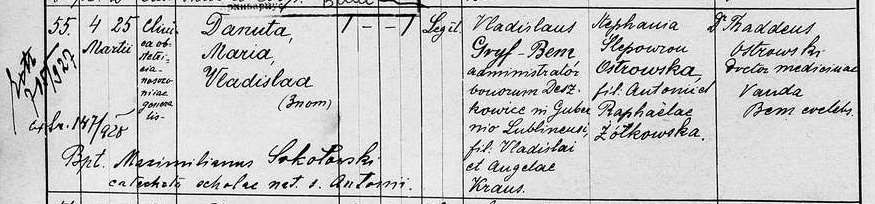 55.
4 25
Martii
Clini
ca ob
stetri
cia
nosoco
miae
genera
lis.
Danuta,
Maria,
Vladislaa
(3 nom)
1 - - 1
Legit.
Vladislaus
Gryf-Bem
administrator
bonorum Desz-
kowice in Guber
nio Lublinensi,
fil. Vladislai
et Angelae
Kraus.
Stephania
Slepowron
Ostrowska,
fil. Antonii et
Raphaelae
Żółkowska.
Dr Thaddeus
Ostrowski
Doctor medicinae
Vanda
Bem coelebs.
1927
147/928
Bpt. Maximilianus Sokołowski
catecheta scholae nat. s. Antonii.